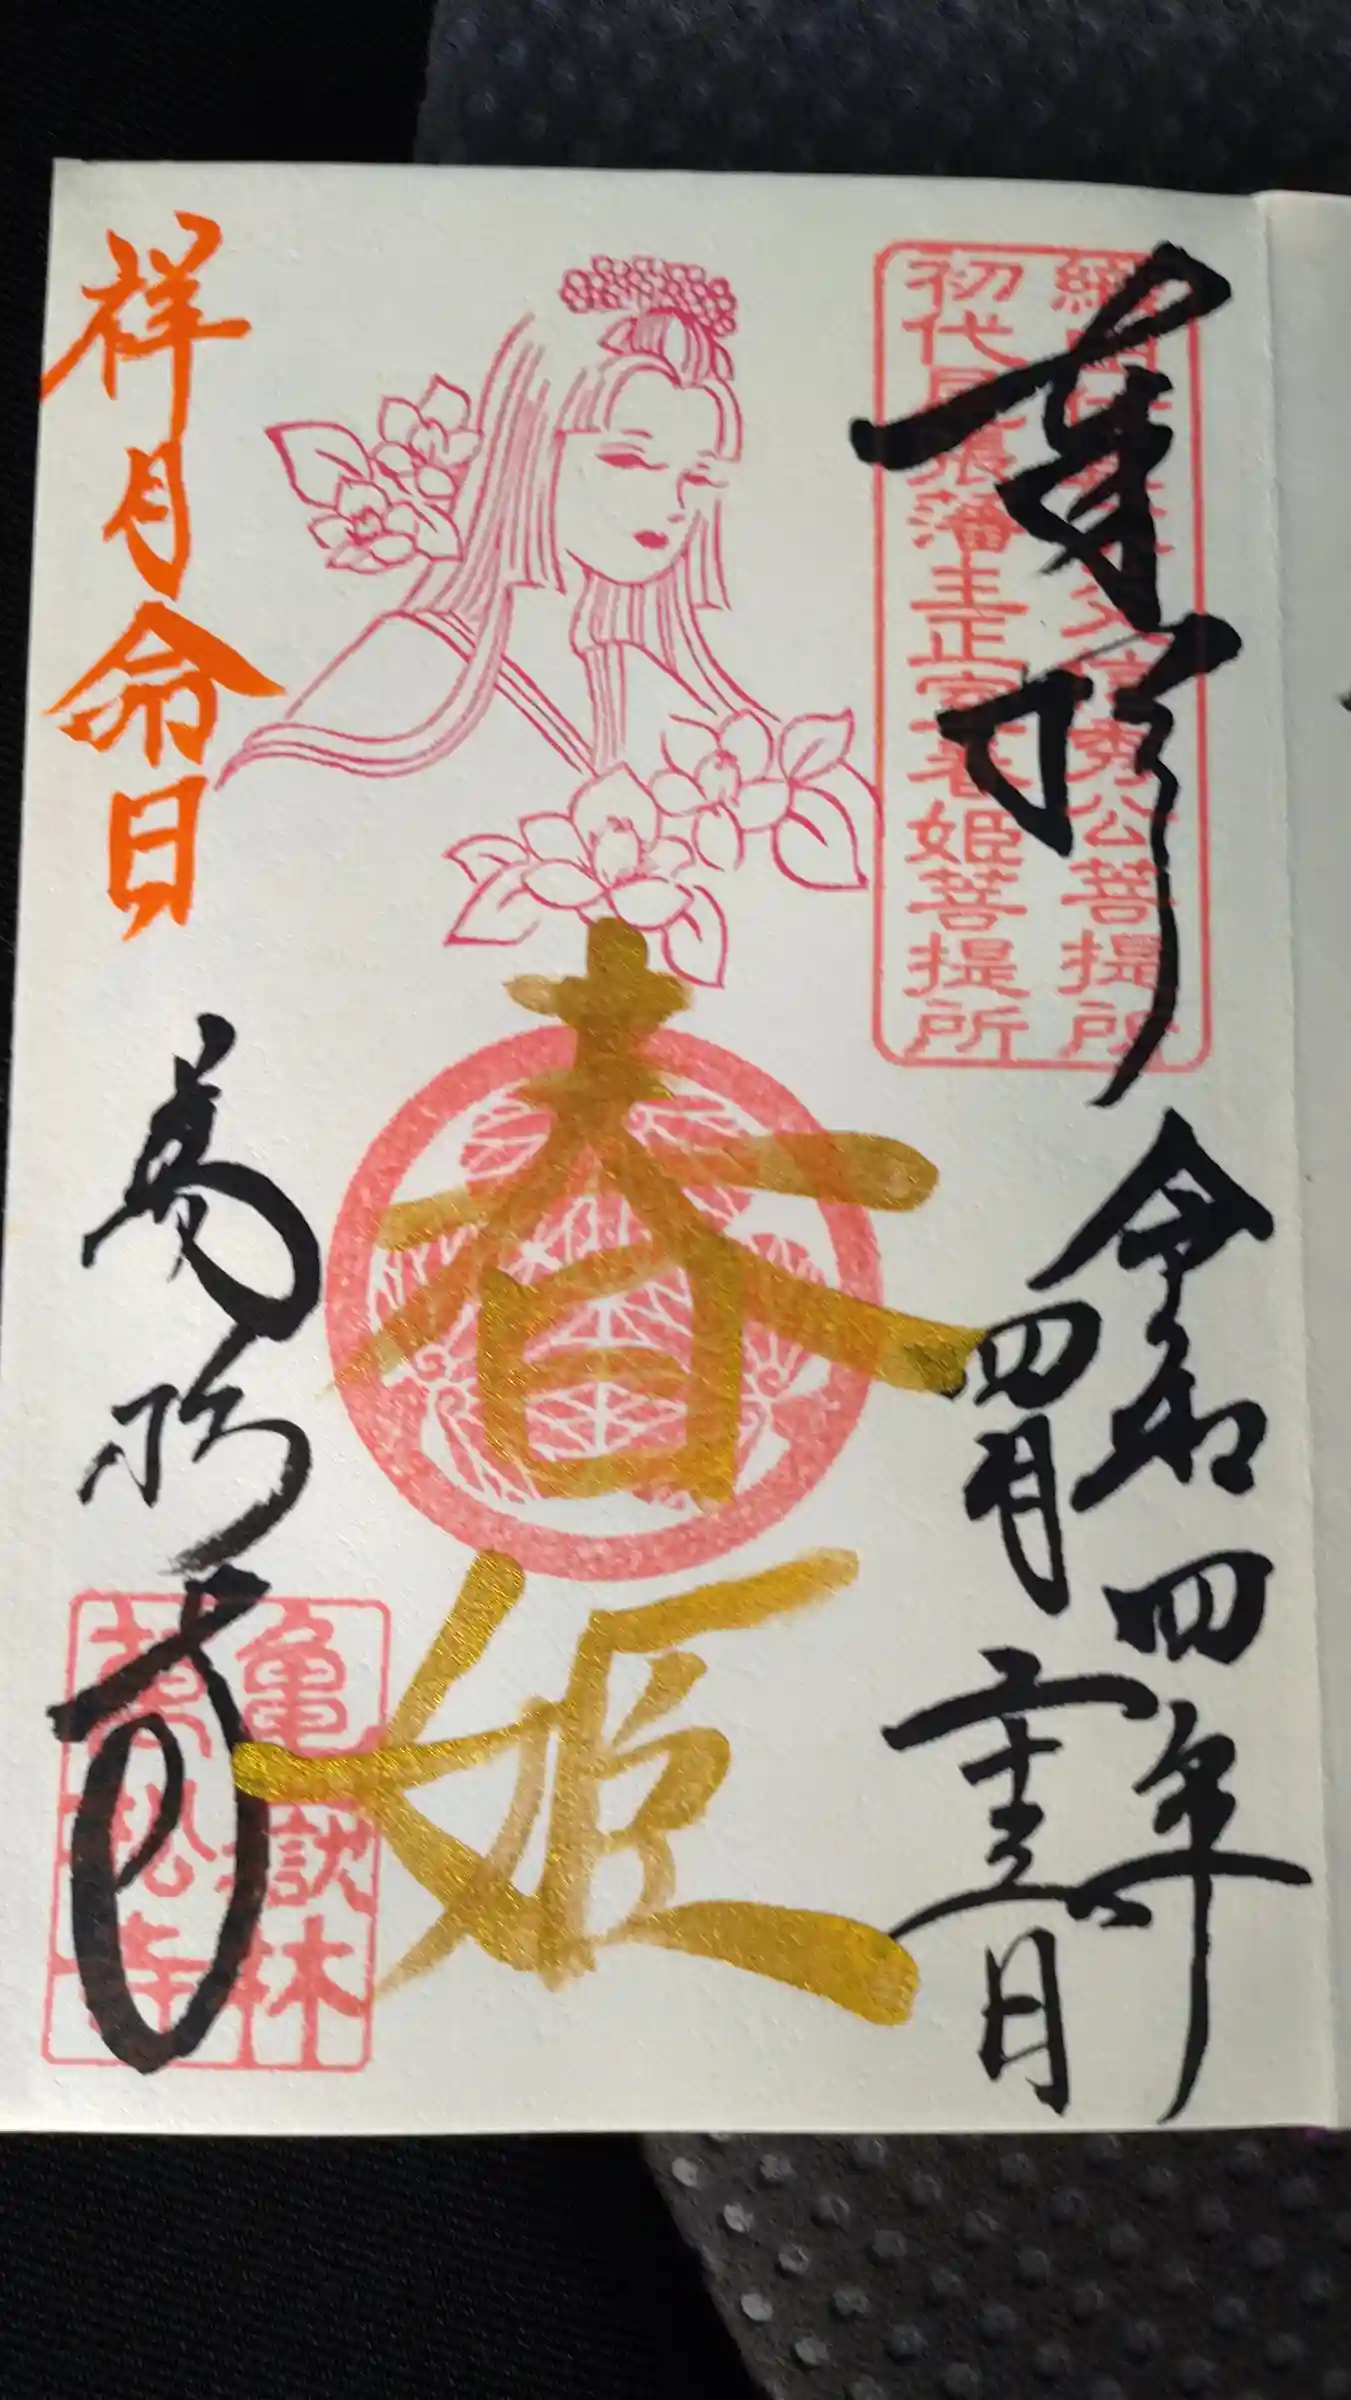 奉拝
織田
信秀公菩提所
初代尾張藩主正室春姫菩提所
令和四年
四月二十三日
春姫
祥月命日
萬松寺
亀嶽林
萬松寺